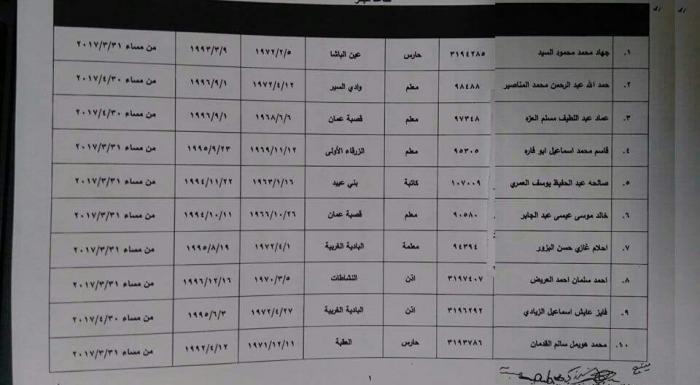 ١. جهاد محمد محمود السيد ٣١٩٤٢٨٥ حارس عين الباشا ١٩٧٢/٢/٥ ١٩٩٣/٣/٩ من مساء ٢٠١٧/٣/٣١
٢. حمد الله عبد الرحمن محمد المناصير ٩٨٤٨٨ معلم وادي السير ١٩٧٢/٤/١٢ ١٩٩٦/٩/١ من مساء ٢٠١٧/٤/٣٠
٣. عماد عبد اللطيف مسلم العزه ٩٧٣٤٨ معلم قصبة عمان ١٩٦٨/٦/٦ ١٩٩٦/٩/١ من مساء ٢٠١٧/٤/٣٠
٤. قاسم محمد اسماعيل ابو فاره ٩٥٣٠٥ معلم الزرقاء الأولى ١٩٦٩/١١/١٢ ١٩٩٥/٩/٢٣ من مساء ٢٠١٧/٣/٣١
٥. صالحه عبد الحفيظ يوسف العمري ١٠٧٠٠٩ كاتبة بني عبيد ١٩٦٣/١/١٦ ١٩٩٤/١١/٢٢ من مساء ٢٠١٧/٣/٣١
٦. خالد موسى عيسى عبد الجابر ٩٠٥٨٠ معلم قصبة عمان ١٩٦٦/١٠/٢٦ ١٩٩٤/١٠/١١ من مساء ٢٠١٧/٣/٣١
٧. احلام غازي حسن البزور ٩٤٣٩٤ معلمة البادية الغربية ١٩٧٢/٤/١ ١٩٩٥/٨/١٩ من مساء ٢٠١٧/٣/٣١
٨. احمد سلمان احمد العريض ٣١٩٧٤٠٧ اذن النشاطات ١٩٧٠/٣/٥ ١٩٩٦/١٢/١٦ من مساء ٢٠١٧/٣/٣١
٩. فايز عايش اسماعيل الزيادي ٣١٩٦٢٩٢ اذن البادية الغربية ١٩٧٢/٤/٢٧ ١٩٩٥/٦/٣ من مساء ٢٠١٧/٤/٣٠
١٠. محمد هويمل سالم القدمان ٣١٩٣٧٨٦ حارس العقبة ١٩٧١/١٢/١١ ١٩٩٢/٤/١٢ من مساء ٢٠١٧/٣/٣١
يتبع
١